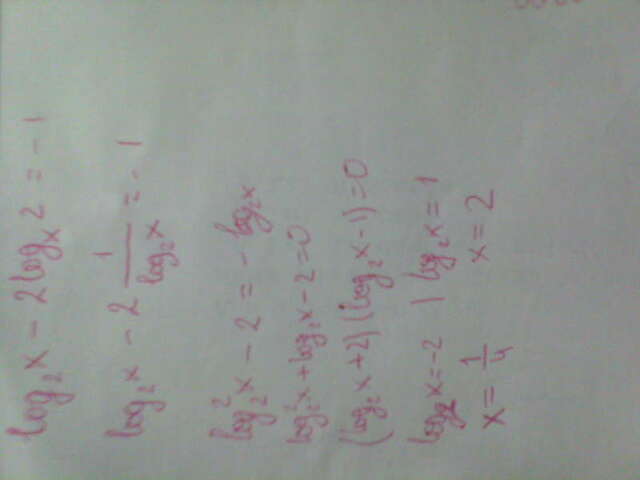 log₂x − 2logₓ2 = −1
log₂x − 2 1/log₂x = −1
log₂²x − 2 = −log₂x
log₂²x + log₂x − 2 = 0
(log₂x + 2)(log₂x − 1) = 0
log₂x = −2 | log₂x = 1
x = 1/4 x = 2